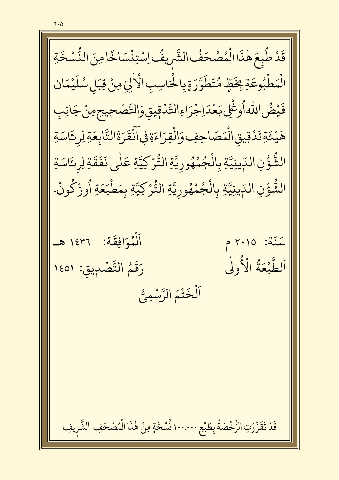 ٦٠٥
قَدْ طُبِعَ هٰذَا الْمُصْحَفُ الشَّرِيفُ اِسْتِنْسَاخًا مِنَ النُّسْخَةِ
الْمَطْبُوعَةِ بِخَطٍّ مُتَطَوَّرَةٍ بِالْحَاسِبِ الْآلِيِّ مِنْ قِبَلِ سُلَيْمَان
فَيْضُ الله أُوغْلِي بَعْدَ اِجْرَاءِ التَّدْقِيقِ وَالتَّصْحِيحِ مِنْ جَانِبِ
هَيْئَةِ تَدْقِيقِ الْمَصَاحِفِ وَالْقِرَاءَةِ فِي أَنْقَرَةَ التَّابِعَةِ لِرِئَاسَةِ
الشُّؤُنِ الدِّينِيَّةِ بِالْجُمْهُورِيَّةِ التُّرْكِيَّةِ عَلَى نَفَقَةِ لِرِئَاسَةِ
الشُّؤُنِ الدِّينِيَّةِ بِالْجُمْهُورِيَّةِ التُّرْكِيَّةِ بِمَطْبَعَةِ أُوزْكُونْ.
سَنَةَ: ٢٠١٥ م اَلْمُوَافَقَةُ: ١٤٣٦ هـ
اَلطَّبْعَةُ الْأُولَى رَقْمُ التَّصْدِيقِ: ١٤٥١
اَلْخَتْمُ الرَّسْمِيُّ
قَدْ تَقَرَّرَتِ الرُّخْصَةُ بِطَبْعِ ١٠٠.٠٠٠ نُسْخَةٍ مِنْ هٰذَا الْمُصْحَفِ الشَّرِيفِ